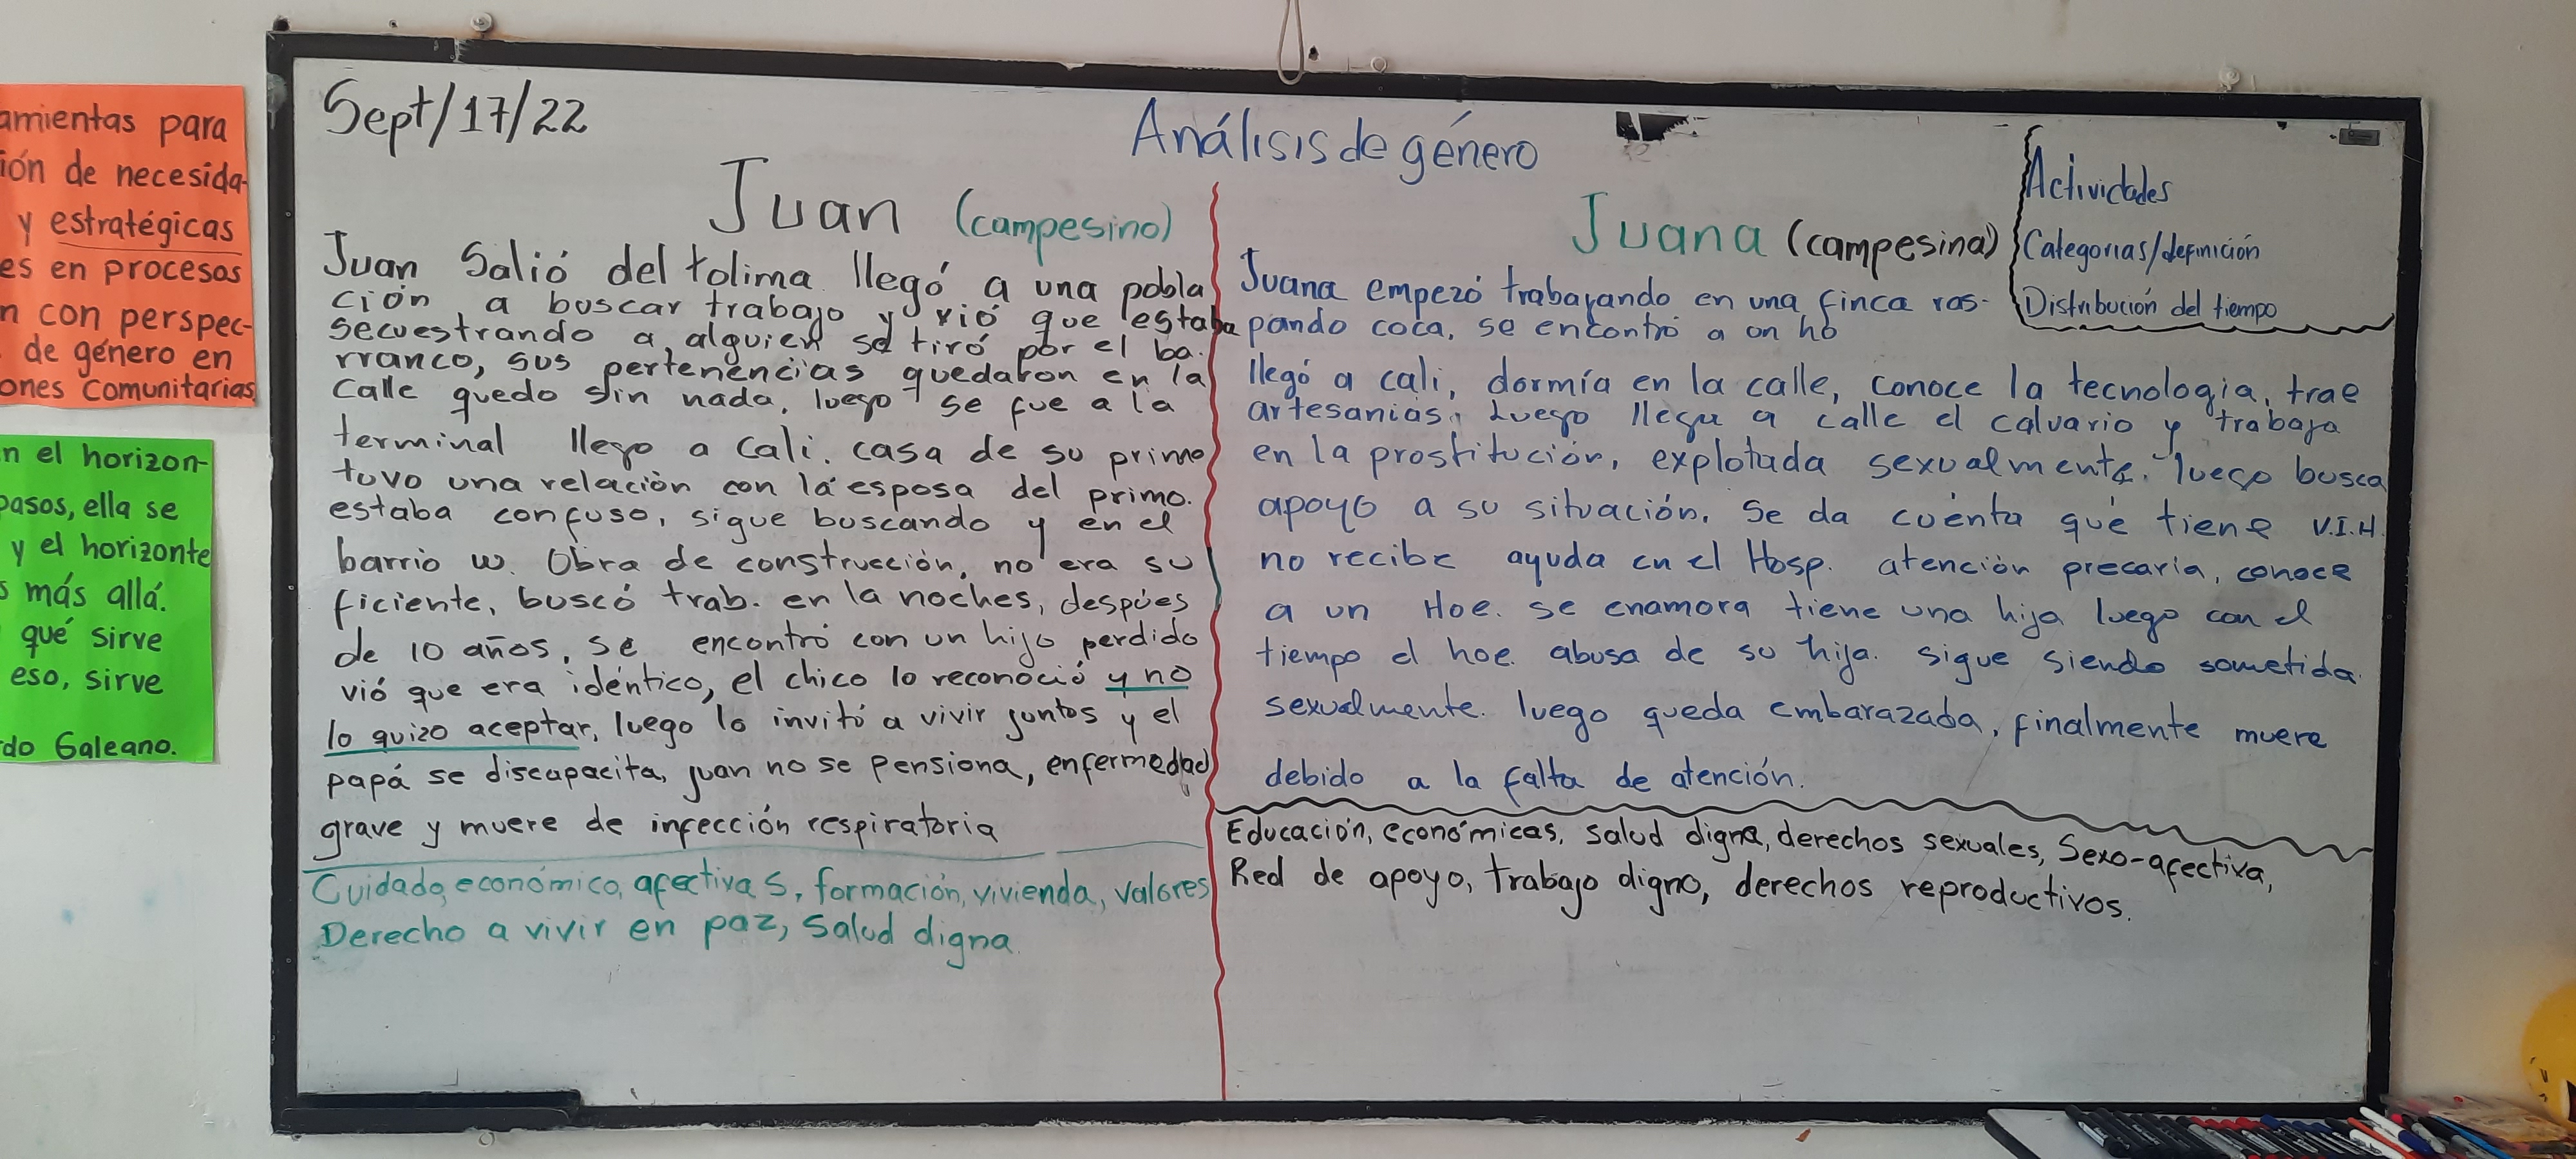 amientas para
ión de necesida-
y estratégicas
es en procesos
n con perspec-
de género en
ones comunitarias
n el horizon-
pasos, ella se
y el horizonte
s más allá.
qué sirve
eso, sirve
do Galeano.
Sept/17/22
Análisis de género
Juan (campesino)
Juan Salió del tolima llegó a una pobla
ción a buscar trabajo y vió que estaba
secuestrando a alguien se tiró por el ba.
rranco, sus pertenencias quedaron en la
calle quedo sin nada, luego se fue a la
terminal llego a Cali. casa de su primo
tuvo una relación con la esposa del primo.
estaba confuso, sigue buscando y en el
barrio w. Obra de construcción, no era su
ficiente, buscó trab. en la noches, despúes
de 10 años, se encontró con un hijo perdido
vió que era idéntico, el chico lo reconoció y no
lo quizo aceptar, luego lo invitó a vivir juntos y el
papá se discapacita, juan no se pensiona, enfermedad
grave y muere de infección respiratoria
Cuidado, económico, afectivas, formación, vivienda, valores
Derecho a vivir en paz, Salud digna.
Juana (campesina)
Juana empezó trabajando en una finca ras-
pando coca, se encontró a on ho
llegó a cali, dormía en la calle, conoce la tecnologia, trae
artesanias. Luego llega a calle el calvario y trabaja
en la prostitución, explotada sexualmente. luego busca
apoyo a su situación. Se da cuenta que tiene V.I.H.
no recibe ayuda en el Hosp. atención precaria, conoce
a un Hoe. se enamora tiene una hija luego con el
tiempo el hoe. abusa de su hija. sigue siendo sometida
sexualmente. luego queda embarazada, finalmente muere
debido a la falta de atención.
Educación, económicas, salud digna, derechos sexuales, Sexo-afectiva,
Red de apoyo, trabajo digno, derechos reproductivos.
Actividades
Categorias/definición
Distribución del tiempo